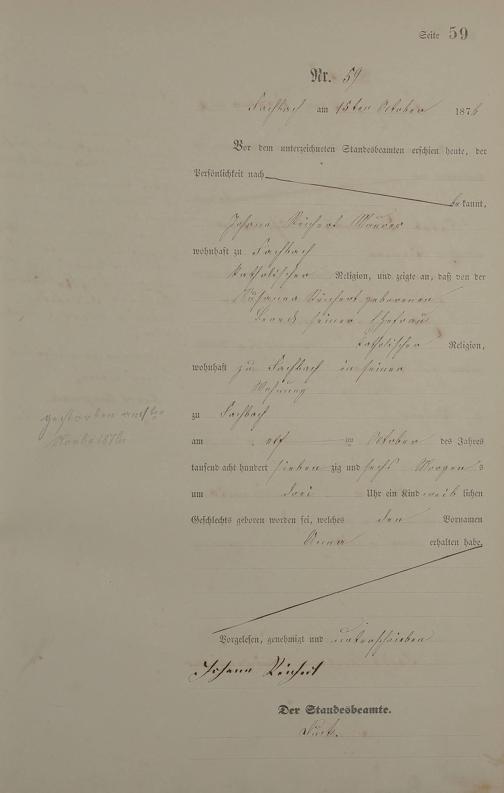 Seite 59
Nr. 59
Fachbach am 15ten October 1876
Vor dem unterzeichneten Standesbeamten erschien heute, der
Persönlichkeit nach
bekannt,
Johann Reichert Maurer
wohnhaft zu Fachbach
katholischer Religion, und zeigte an, daß von der
Reichert geborenen
seiner Ehefrau
katholischer Religion,
wohnhaft zu Fachbach in seiner
Wohnung
zu Fachbach
am elf ten October des Jahres
tausend acht hundert sieben zig und sechs Morgens
um drei Uhr ein Kind weib lichen
Geschlechts geboren worden sei, welches den Vornamen
Anna
erhalten habe.
gestorben am
1876
Vorgelesen, genehmigt und unterschrieben
Johann Reichert
Der Standesbeamte.